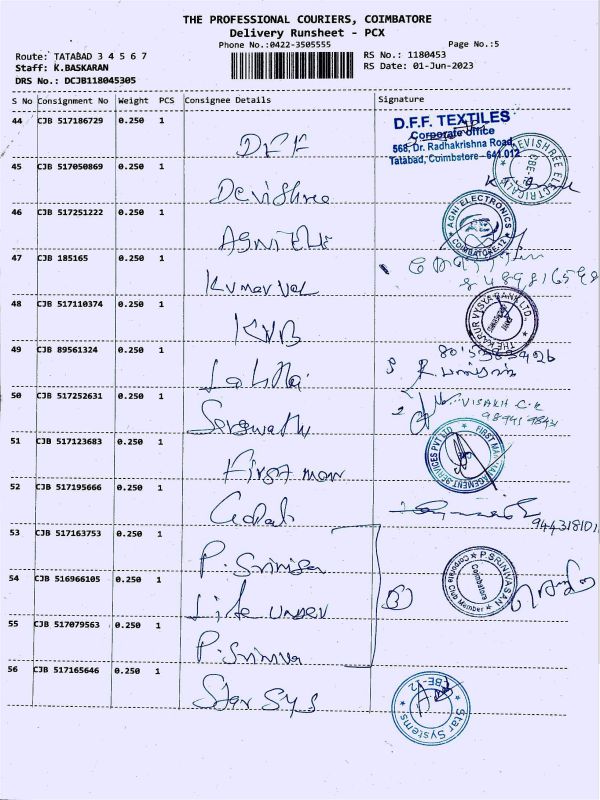 THE PROFESSIONAL COURIERS, COIMBATORE
Delivery Runsheet - PCX
Phone No.:0422-3505555
Page No.:5
Route: TATABAD 3 4 5 6 7
Staff: K.BASKARAN
DRS No.: DCJB118045305
RS No.: 1180453
RS Date: 01-Jun-2023
S No Consignment No Weight PCS Consignee Details Signature
44 CJB 517186729 0.250 1
DFF
D.F.F. TEXTILES
Corporate Office
568, Dr. Radhakrishna Road,
Tatabad, Coimbatore - 641 012
45 CJB 517050869 0.250 1
Devishree
DEVISHREE ELECTRICAL
CBE-
46 CJB 517251222 0.250 1
Agni Ele
AGNI ELECTRONICS
COIMBATORE-12
47 CJB 185165 0.250 1
Kumar Vel
8489816598
48 CJB 517110374 0.250 1
KVB
THE KARUR VYSYA BANK LTD.,
49 CJB 89561324 0.250 1
50 CJB 517252631 0.250 1
VISAKH C.K
51 CJB 517123683 0.250 1
First man
FIRST MAN MANAGEMENT SERVICES PVT LTD
52 CJB 517195666 0.250 1
944318101
53 CJB 517163753 0.250 1
P. Sriniva
P.SRINIVASAN
Coimbatore
Club Member
54 CJB 516966105 0.250 1
Life under
55 CJB 517079563 0.250 1
P. Sriniva
56 CJB 517165646 0.250 1
Star Sys
Star Systems
CBE-12